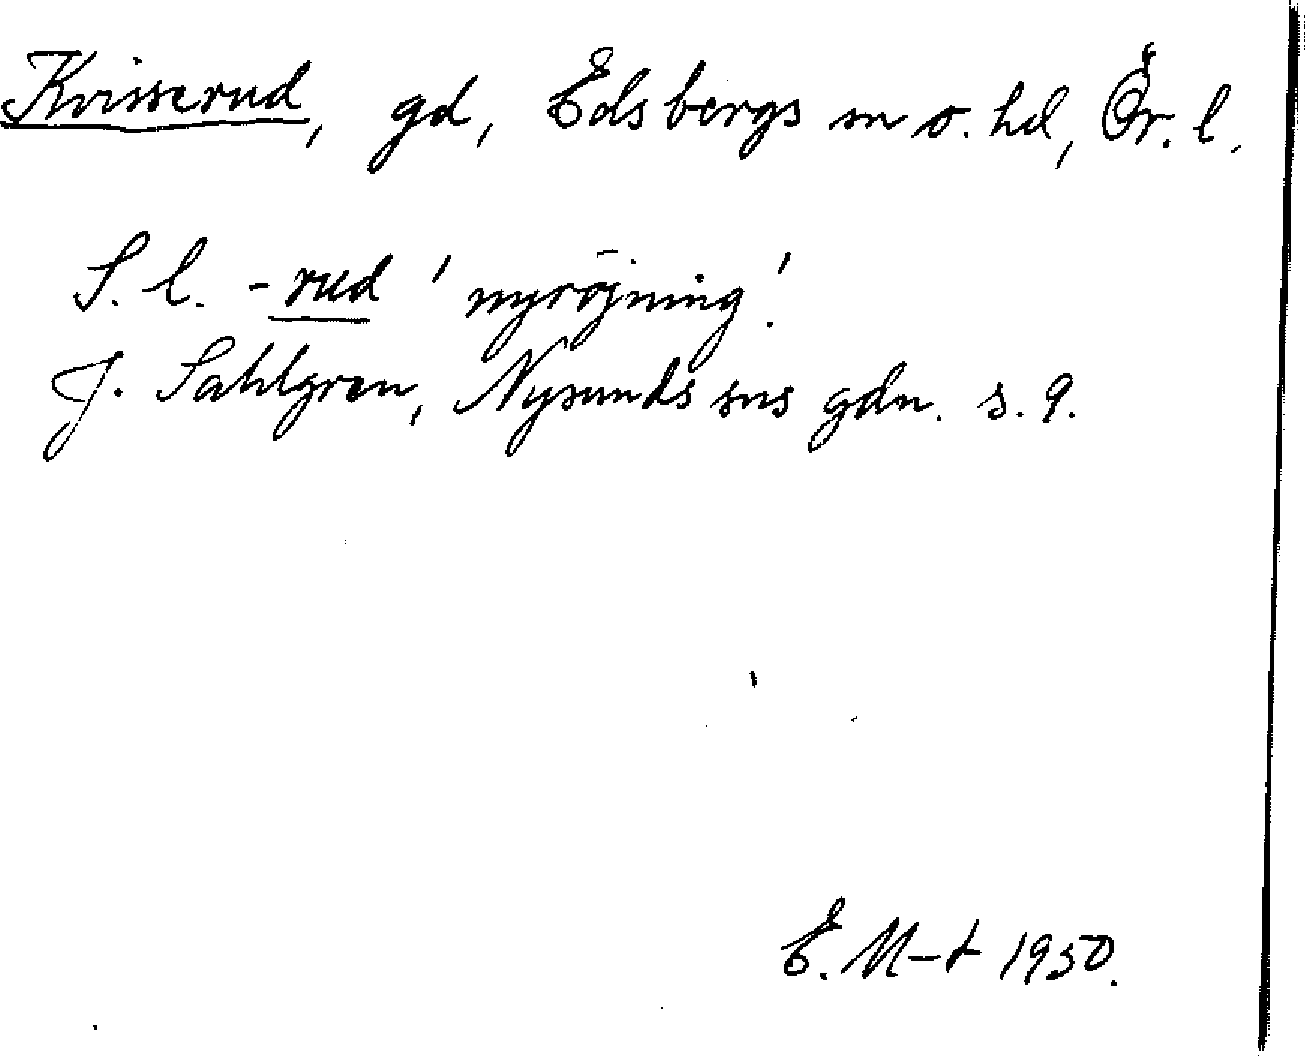 Kvisserud, gd, Edsbergs sn o. hd, Ör. l.
S. l. -rud 'nyröjning'.
J. Sahlgren, Nysunds sns gdn. s. 9.
E. M-t 1950.